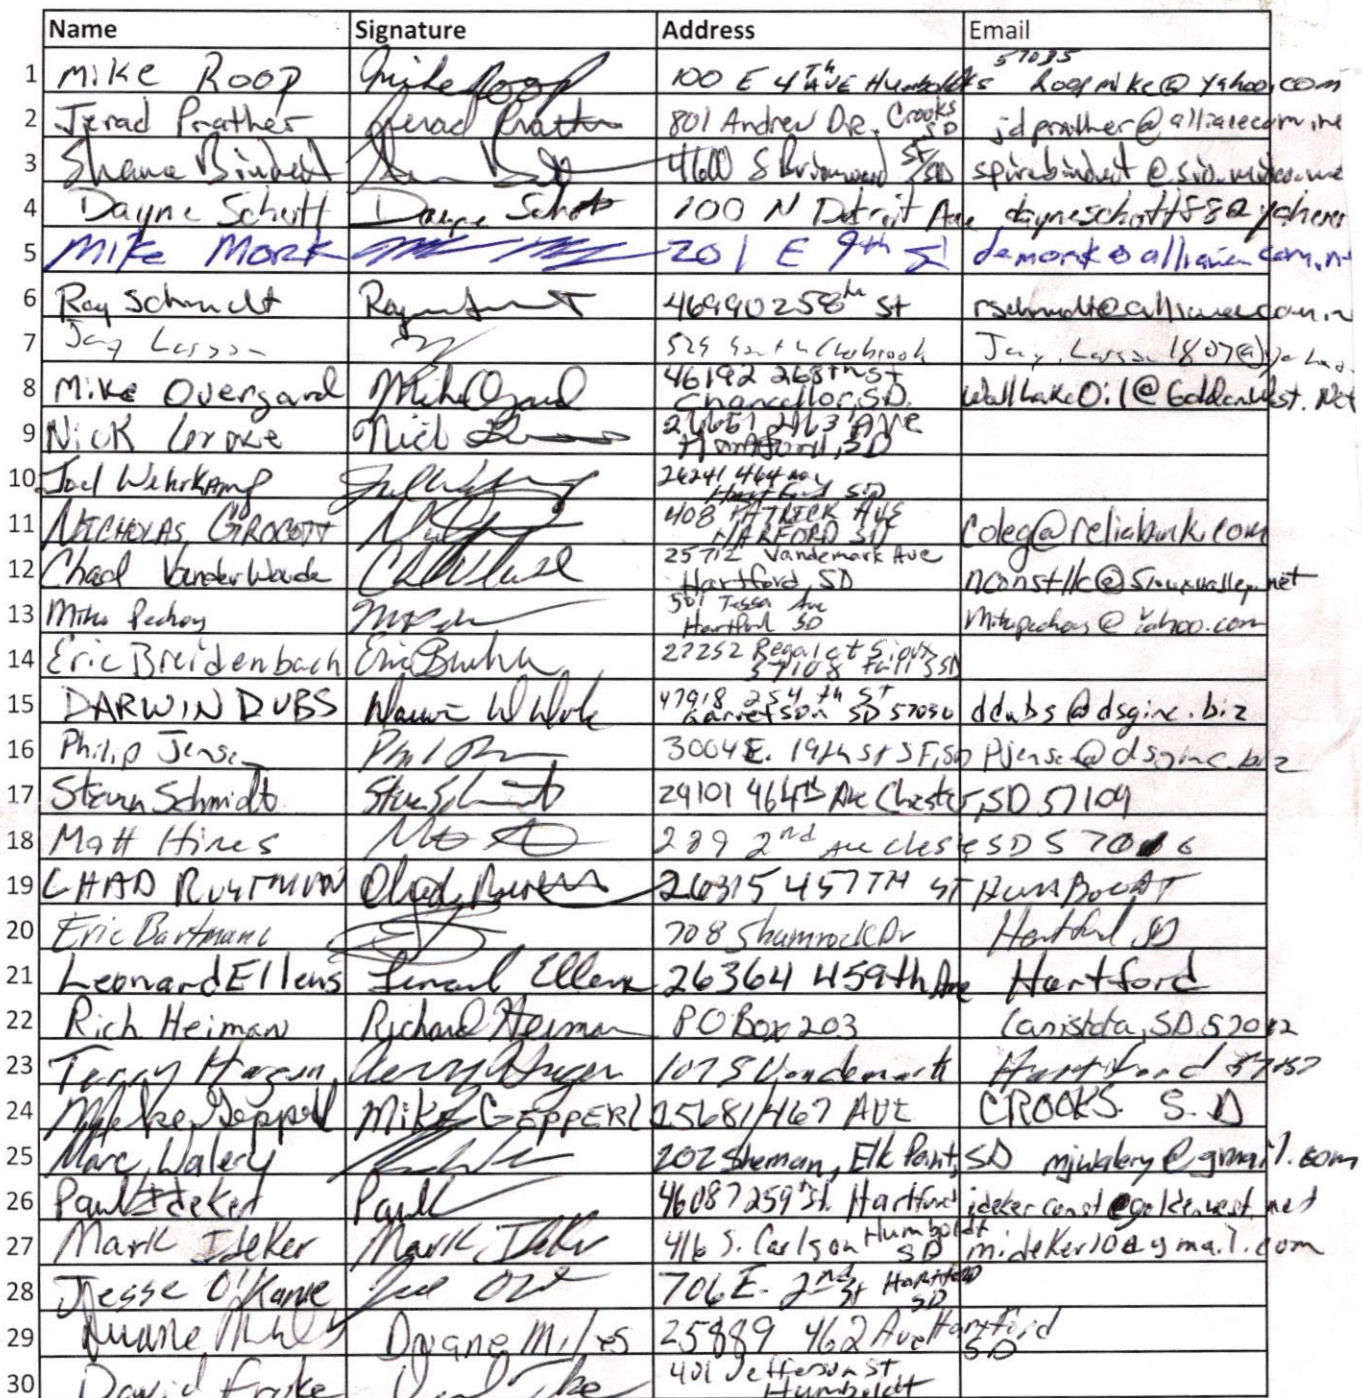 Name Signature Address Email
57035
1 MIKE ROOP Mike Roop 100 E 4th AVE Humboldt roopmike@yahoo.com
2 Jerad Prather Jerad Prather 801 Andrew DR. Crooks SD jdprather@alliancecom.ne
3 Shane 4600 S SF/SD
4 Dayne Schott Dayne Schott 100 N Detroit Ave
5 Mike Mork 201 E 9th St demork@alliancecom.n
6 Ray Schmidt 46990 258th St rschmidt@alliancecom.n
7 Jay Larson 529
8 Mike Overgard 46192 268th St
Chancellor, SD. WallLakeOil@Goldenwest.Net
9 Nick 463 AVE
Hartford, SD
10 Joel Wehrkamp 26241 464 Ave
Hartford SD
11 NICHOLAS GROCOTT 408 PATRICK AVE
HARFORD SD coleg@reliabank.com
12 Chad VanderWaude 25712 Vandemark Ave
Hartford, SD nconstllc@siouxvalley.net
13 Mike Pechey 501 Tessa Ave
Hartford SD @Yahoo.com
14 Eric Breidenbach 27252 Regal ct Sioux
57108 Falls SD
15 DARWIN DUBS 47918 254th St
Garretson SD 57030 ddubs@dsginc.biz
16 Philip 3004 E. 19th St SF, SD @dsginc.biz
17 Steven Schmidt 24101 464th Ave Chester, SD 57109
18 Matt Hines 289 2nd Ave SD
19 CHAD 26315 457TH ST
20 Eric Bartmann 708 Shamrock Dr Hartford SD
21 Leonard Ellens Lenard Ellens 26364 459th Ave Hartford
22 Rich Heiman Richard Heiman PO Box 203 Canistota, SD 57012
23 Terry Hagen Terry Hagen 107 S Vandemark Hartford
24 Mike Geppert MIKE GEPPERT 25681/467 AVE CROOKS. S.D
25 Marc Walery 202 Sherman, Elk Point, SD mjwalery@gmail.com
26 Paul Ideker Paul 46087 259th St. Hartford idekerconst@goldenwest.net
27 Mark Ideker Mark Ideker 416 S. Carlson Humboldt SD mideker10@gmail.com
28 Jesse O'Kane 706 E. 2nd St Hartford SD
29 Duane Miles Duane Miles 25889 462 Ave Hartford SD
30 David Fricke 401 Jefferson St
Humboldt